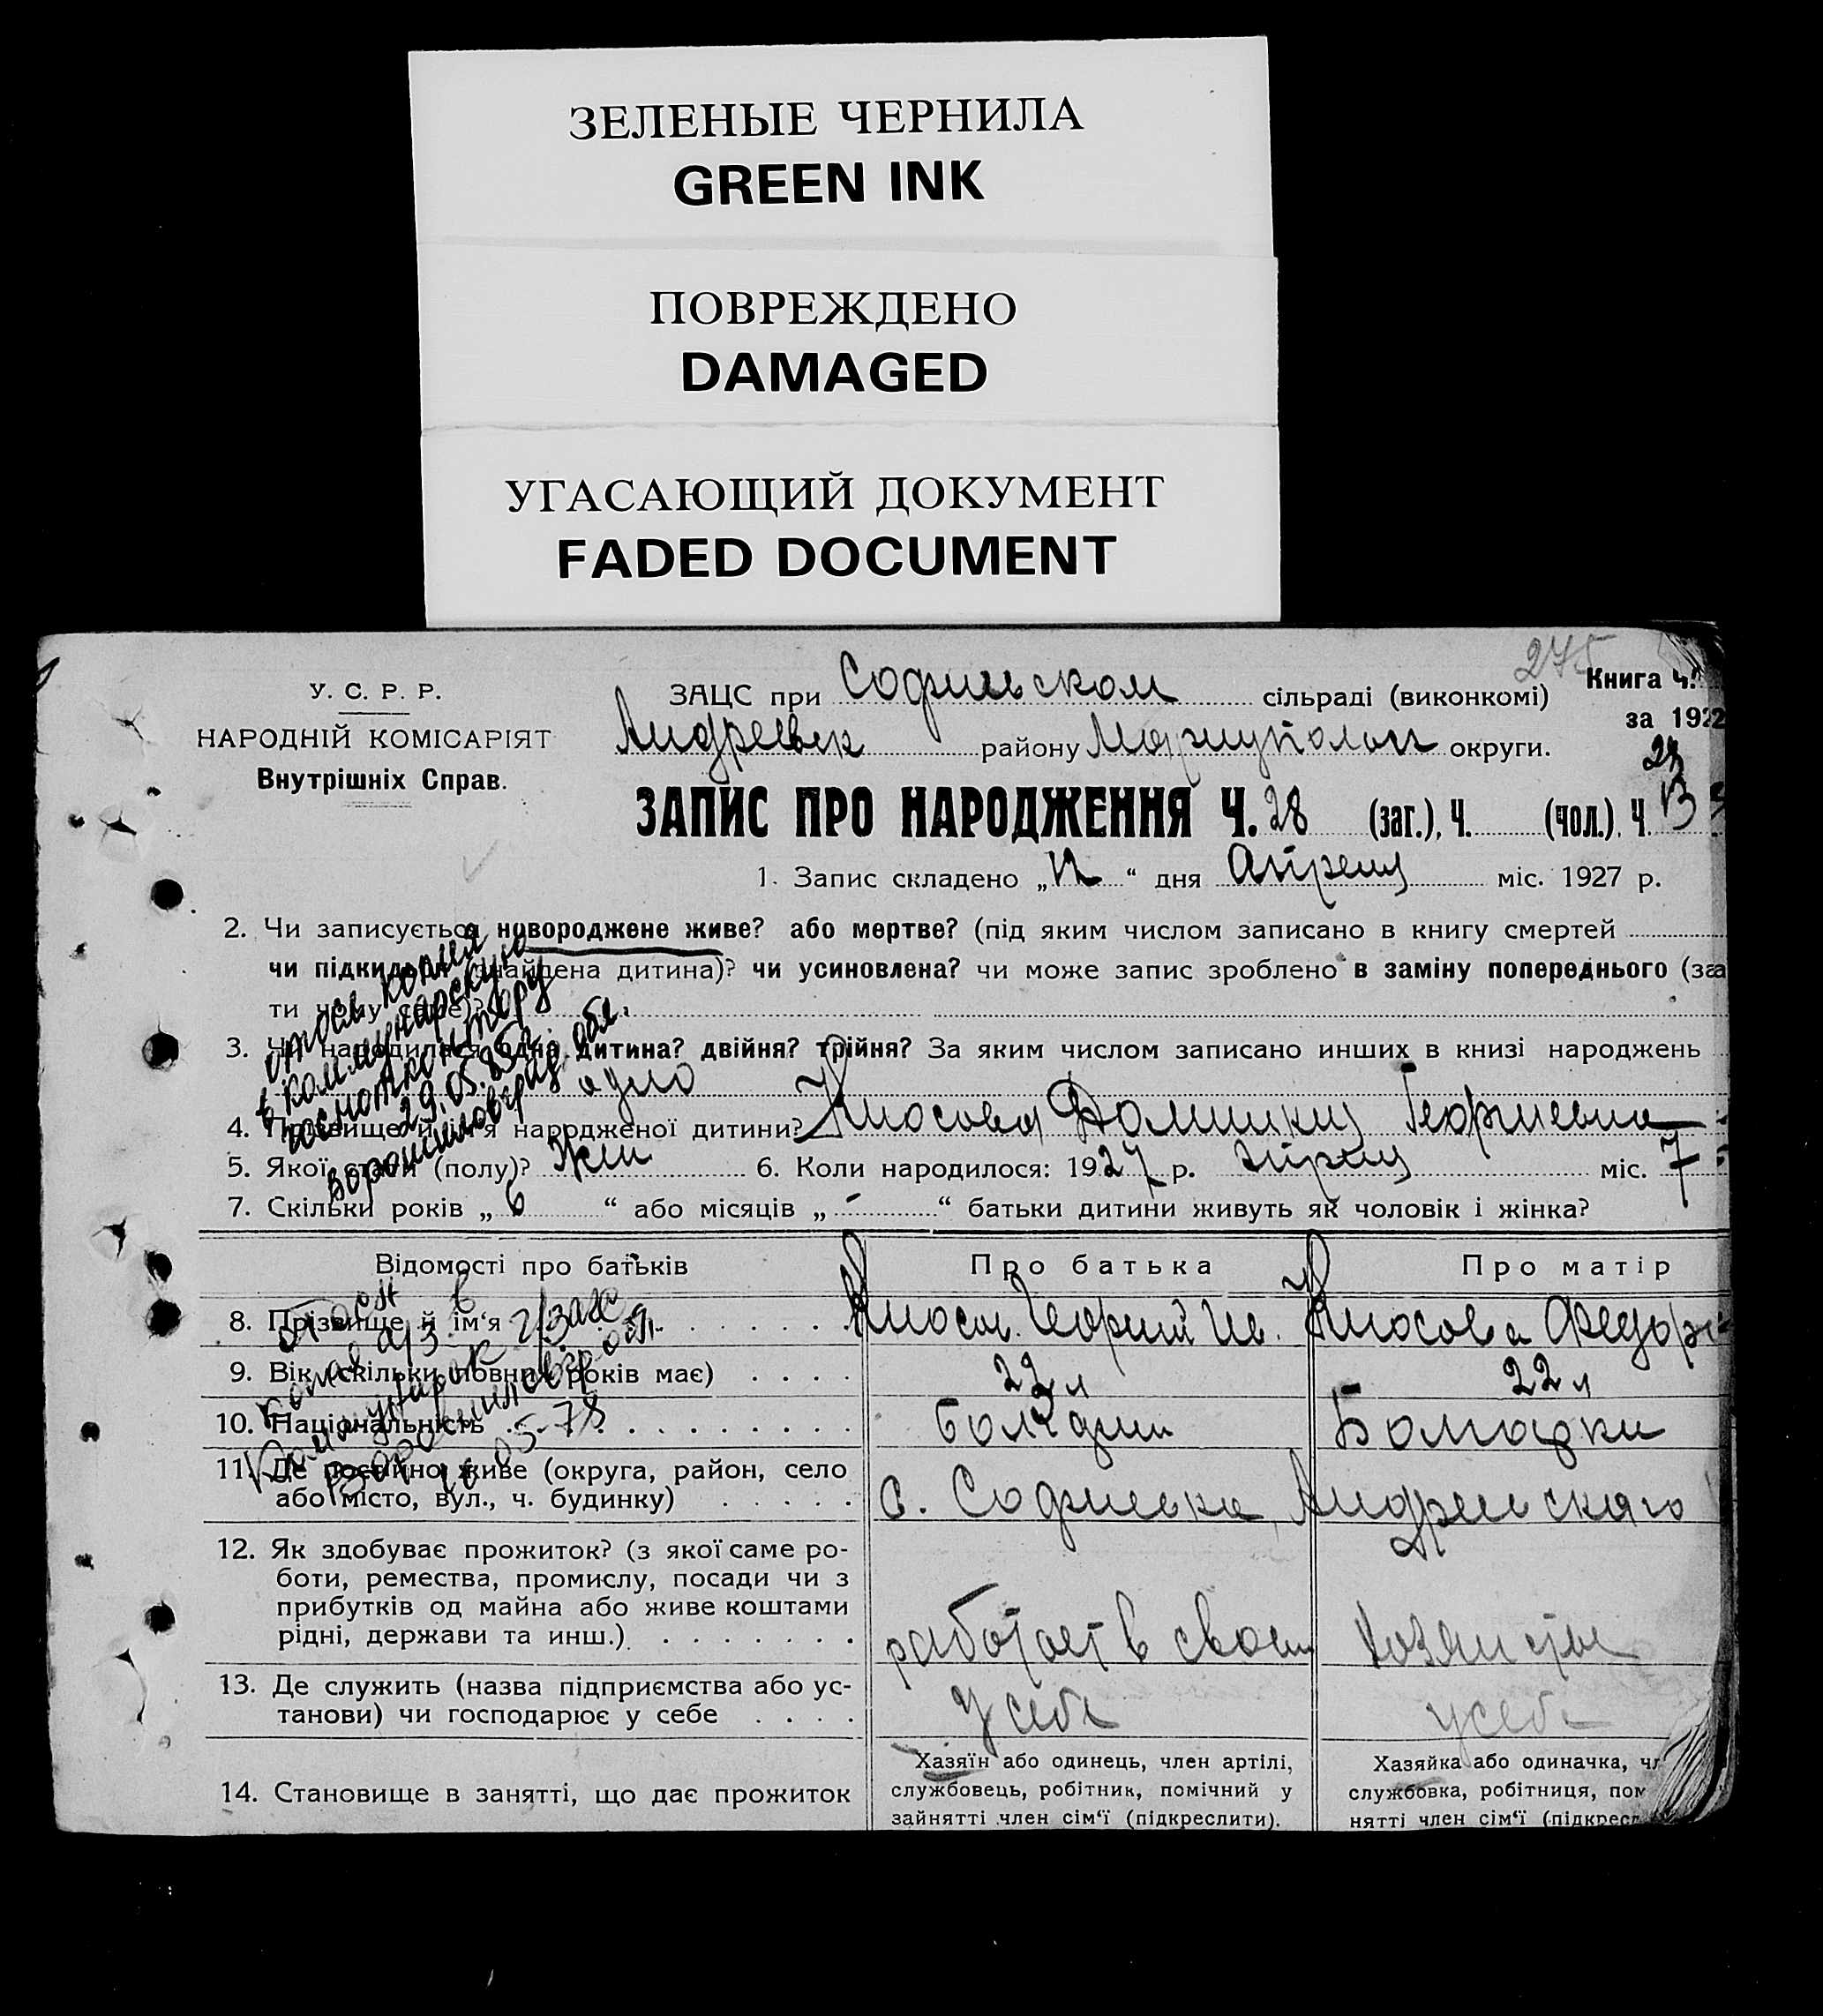 ЗЕЛЕНЫЕ ЧЕРНИЛА
GREEN INK
ПОВРЕЖДЕНО
DAMAGED
УГАСАЮЩИЙ ДОКУМЕНТ
FADED DOCUMENT
275
У. С. Р. Р.
НАРОДНІЙ КОМІСАРІЯТ
Внутрішніх Справ.
ЗАЦС при Софиевском сільраді (виконкомі)
Книга Ч.
за 192
Андреевск району Мариупольск округи.
28
ЗАПИС ПРО НАРОДЖЕННЯ Ч. 28 (заг.), Ч. (чол.), Ч. 13
1. Запис складено „12“ дня Апреля міс. 1927 р.
2. Чи записується новороджене живе? або мертве? (під яким числом записано в книгу смертей
чи підкидько (знайдена дитина)? чи усиновлена? чи може запис зроблено в заміну попереднього (за
ти чому саме)?
3. Чи народилася одна дитина? двійня? трійня? За яким числом записано инших в книзі народжень
одно
4. Прізвище й ім‘я народженої дитини? Киосова Домникия Георгиевна
5. Якої стати (полу)? Жен 6. Коли народилося: 1927 р. Апреля міс. 7
7. Скільки років „6“ або місяців „-“ батьки дитини живуть як чоловік і жінка?
отосл копия
в коммунарскую
госнотконтору
29.05.85г.
Ворошиловград. обл.
Відомості про батьків
Про батька
Про матір
8. Прізвище й ім‘я
Киосов Георгий Ив.
Киосова Федор
9. Вік (скільки повних років має)
22 л
22 л
10. Національність
болгарин
Болгарки
11. Де постійно живе (округа, район, село
або місто, вул., ч. будинку)
с. Софиевка, Андреевского
12. Як здобуває прожиток? (з якої саме ро-
боти, ремества, промислу, посади чи з
прибутків од майна або живе коштами
рідні, держави та инш.)
работает в своем хозяистве
13. Де служить (назва підприємства або ус-
танови) чи господарює у себе
У себе
у себе
14. Становище в занятті, що дає прожиток
Хазяїн або одинець, член артілі,
службовець, робітник, помічний у
зайнятті член сім‘ї (підкреслити).
Хазяйка або одиначка, чл
службовка, робітниця, пом
нятті член сім‘ї (підкресл